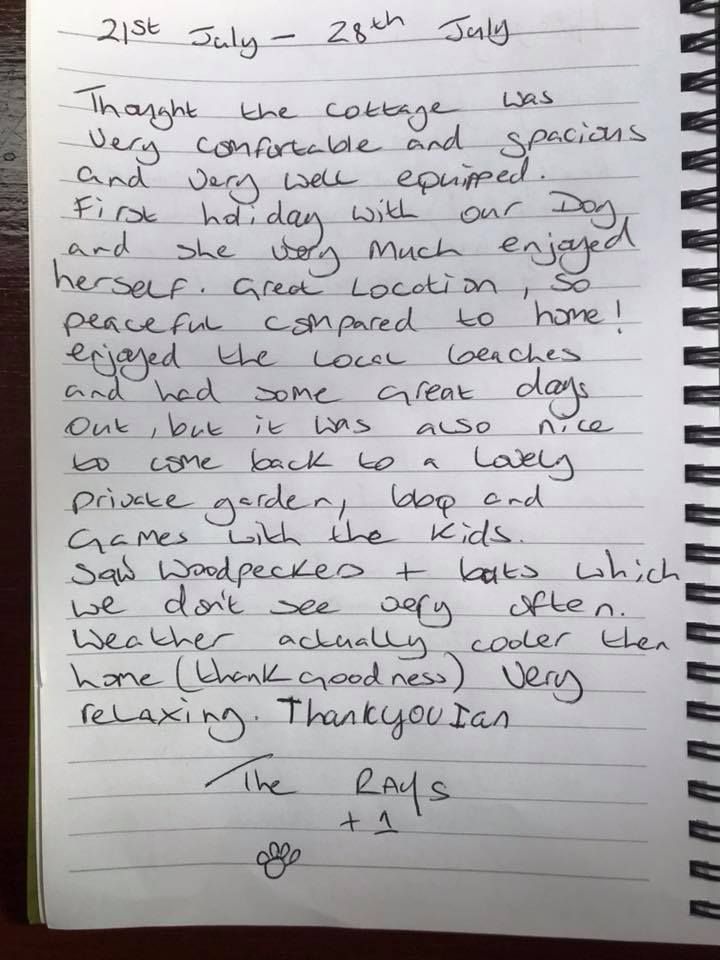 21st July - 28th July
Thought the cottage was
very comfortable and spacious
and very well equipped.
First holiday with our Dog
and she very much enjoyed
herself. Great Location, so
peaceful compared to home!
enjoyed the local beaches
and had some great days
out, but it was also nice
to come back to a lovely
private garden, bbq and
Games with the kids.
Saw Woodpeckers + bats which
we don't see very often.
Weather actually cooler then
home (thank goodness) Very
relaxing. Thankyou Ian
The RAYS
+ 1